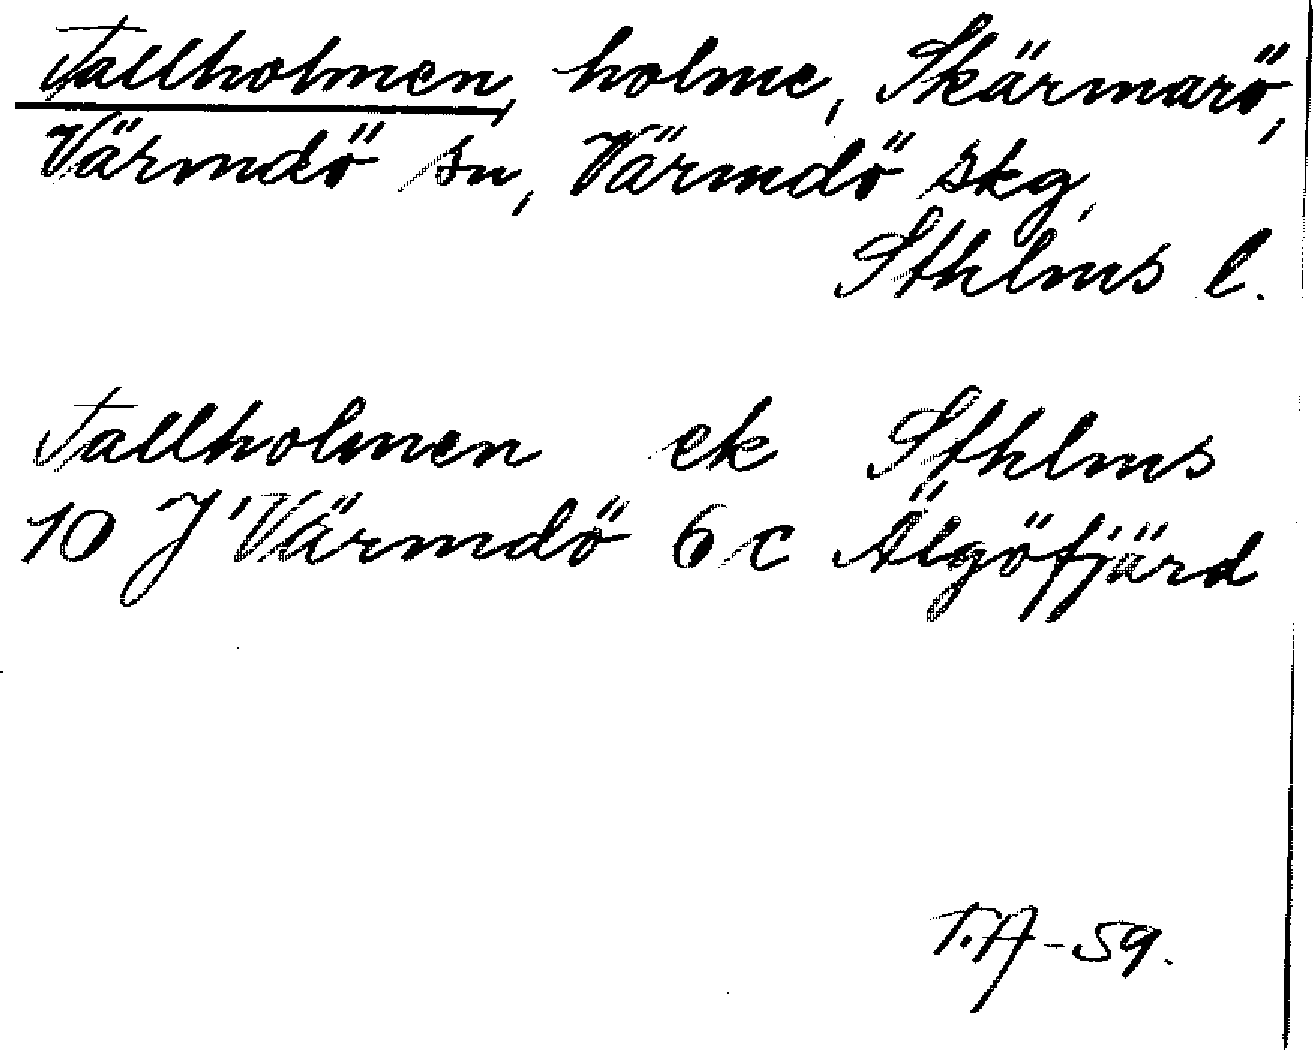 Tallholmen, holme, Skärmarö,
Värmdö sn, Värmdö skg,
Sthlms l.
Tallholmen ek Sthlms
10 J Värmdö 6 c Älgöfjärd
T.A-59.